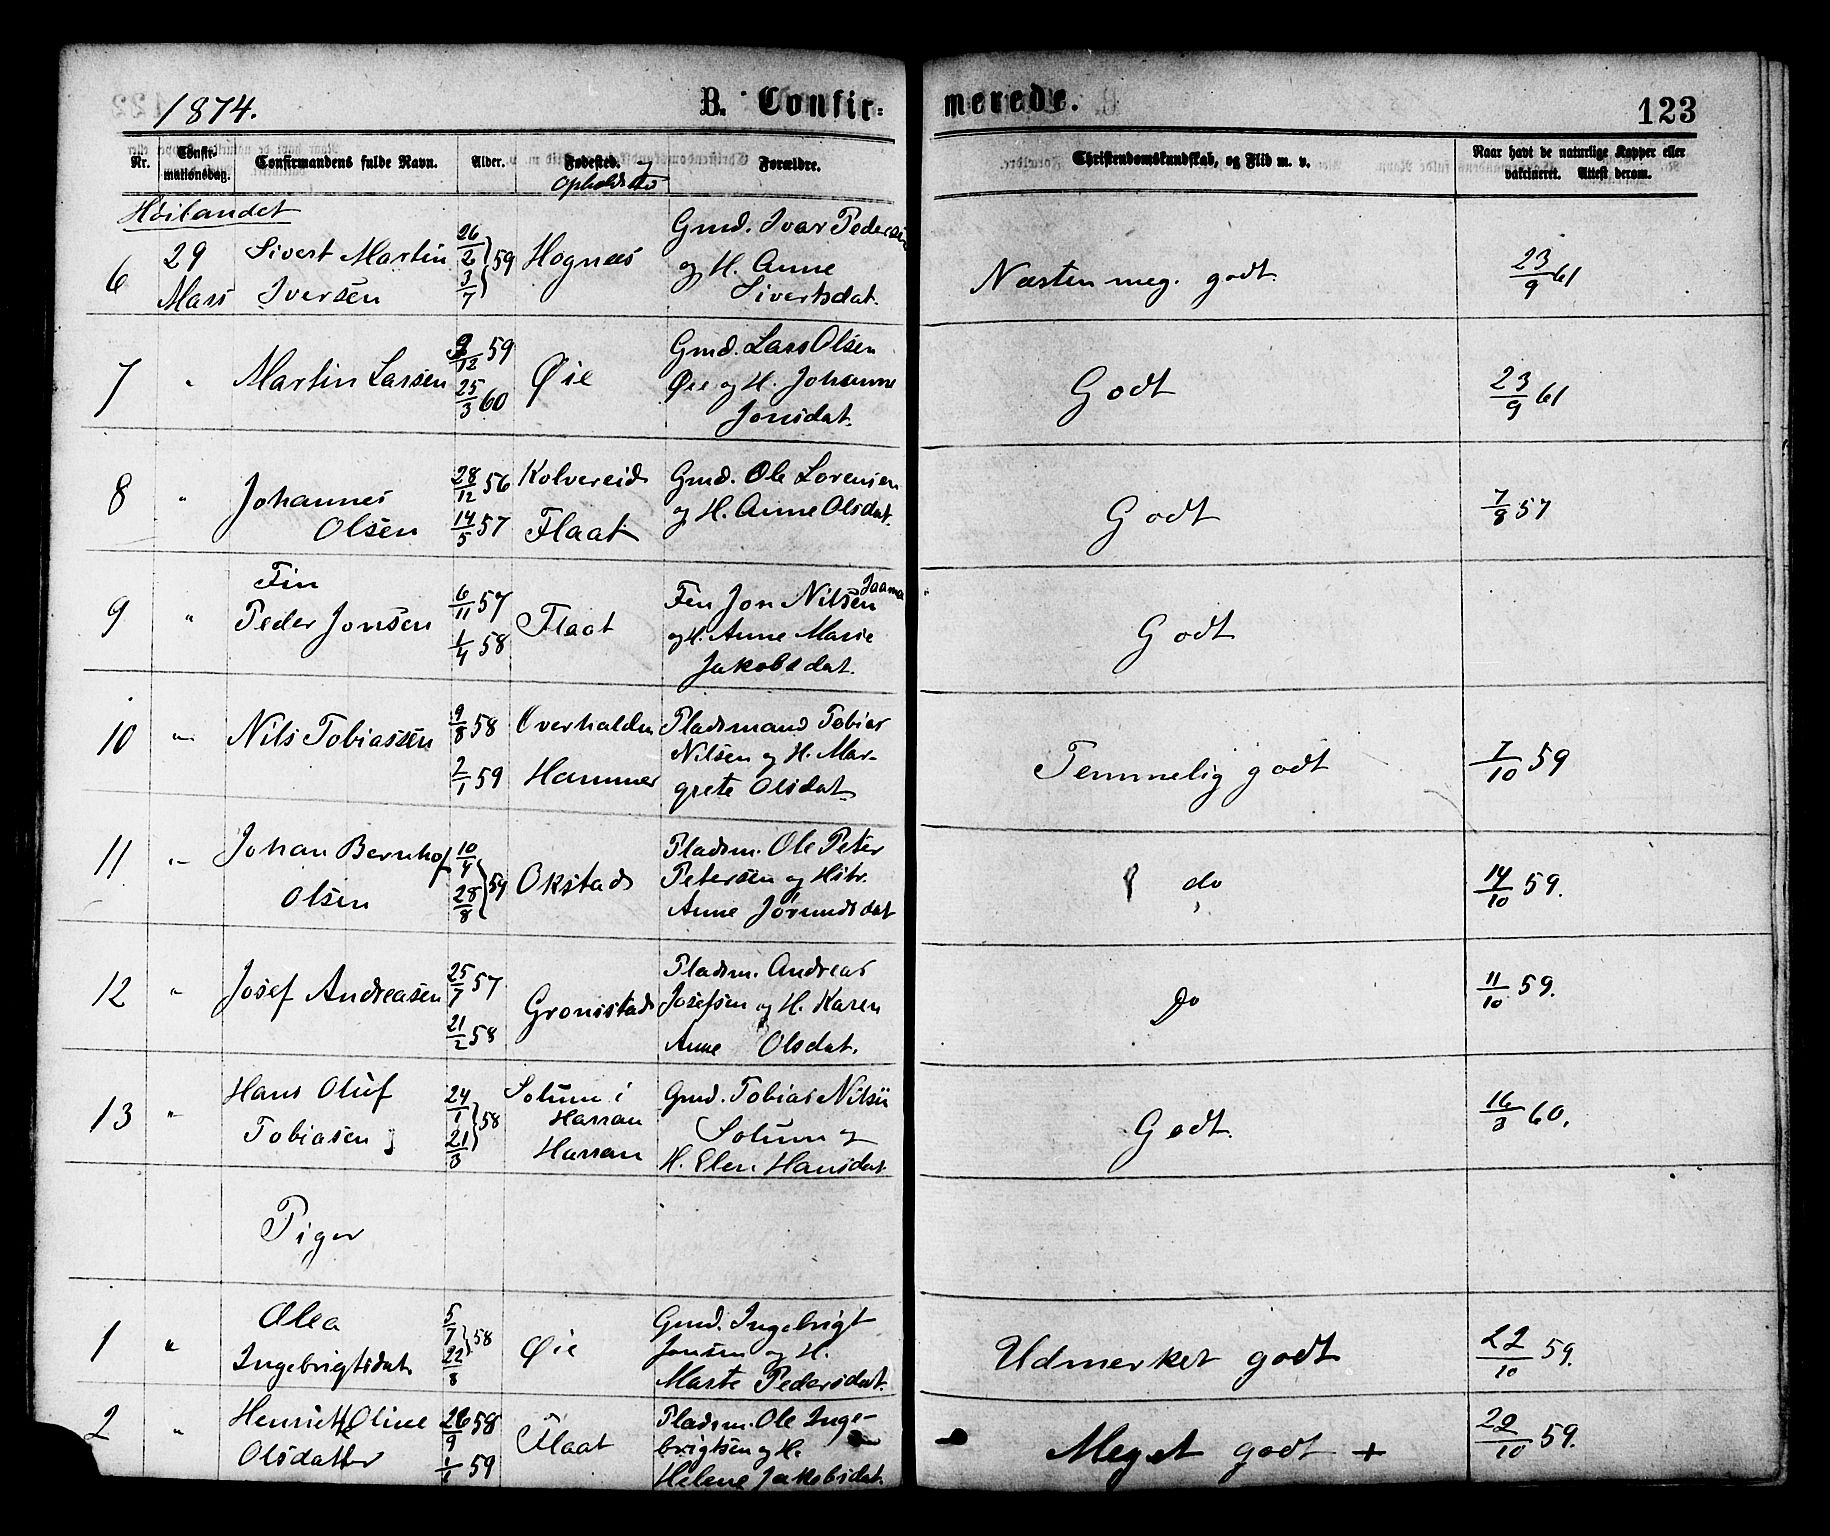 1874. B. Confir= merede. 123
Nr. Confirmationsdag. Confirmandens fulde Navn. Alder. Fødested. Forældre. Christendomskundskab, og Flid m. v. Naar havt de naturlige Kopper eller vakcineret. Attest derom.
Opholdsted
Høilandet
6 29 Mars Sivert Martin Iversen 26/2 3/7 59 Hognæs Gmd. Ivar Pedersen og H. Anne Sivertsdat. Næsten meg. godt. 23/9 61
7 " Martin Larsen 9/12 59 25/3 60 Øie Gmd. Lars Olsen Øie og H. Johanne Jonsdat. Godt 23/9 61
8 " Johannes Olsen 28/12 56 14/5 57 Kolvereid Flaat Gmd. Ole Lorensen og H. Anne Olsdat. Godt 7/8 57
9 " Fin Peder Jonsen 6/11 57 1/4 58 Flaat Fin Jon Nilsen Jaama og H. Anne Marie Jakobsdat. Godt
10 " Nils Tobiassen 9/8 58 2/1 59 Overhalden Hammer Pladsmand Tobias Nilsen og H. Margrete Olsdat. Temmelig godt 7/10 59
11 " Johan Bernhof Olsen 10/4 28/8 59 Okstad Pladsm. Ole Peter Petersen og Hstr. Anne Jørundsdat do 14/10 59.
12 " Josef Andreasen 25/7 57 21/2 58 Gronistad Pladsm. Andreas Josefsen og H. Karen Anne Olsdat. Do 11/10 59.
13 " Hans Oluf Tobiasen 24/1 21/3 58 Solum i Harran Harran Gmd. Tobias Nilsen Solum og H. Elen Hansdat. Godt. 16/3 60.
Piger
1 " Olea Ingebrigtsdat 5/7 22/8 58 Øie Gmd. Ingebrigt Jonsen og H. Marte Pedersdat. Udmerket godt 22/10 59.
2 " Henriette Oline Olsdatter 26/9 58 1/1 59 Flaat Pladsm. Ole Ingebrigtsen og H. Helene Jakobsdat. Meget godt + 22/10 59.